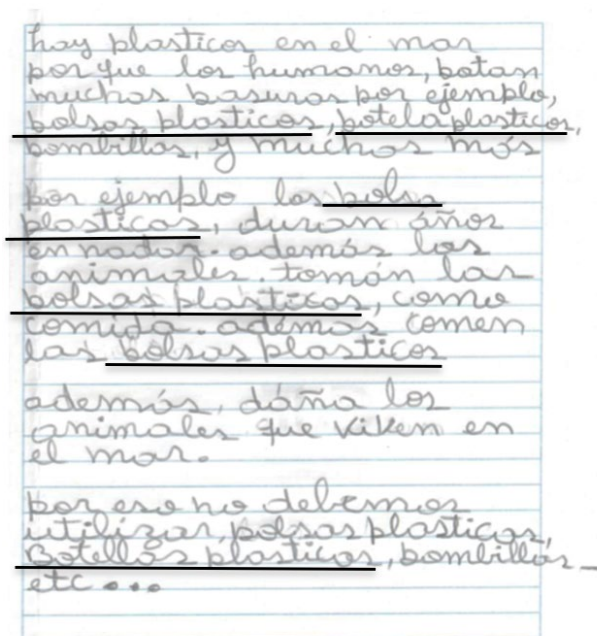 hay plasticos en el mar
por que los humanos, botan
muchas basuras por ejemplo,
bolsas plasticos, potela plasticos,
bombillas, y muchos más
por ejemplo las bolsa
plasticas, duran años
en nadar. además los
animales. tomán las
bolsas plasticos, como
comida. además comen
las bolsas plasticos
además, dáña los
animales que viken en
el mar.
por eso no debemos
utilizar, bolsas plasticos,
Botellas plasticos, bombillas
etc...